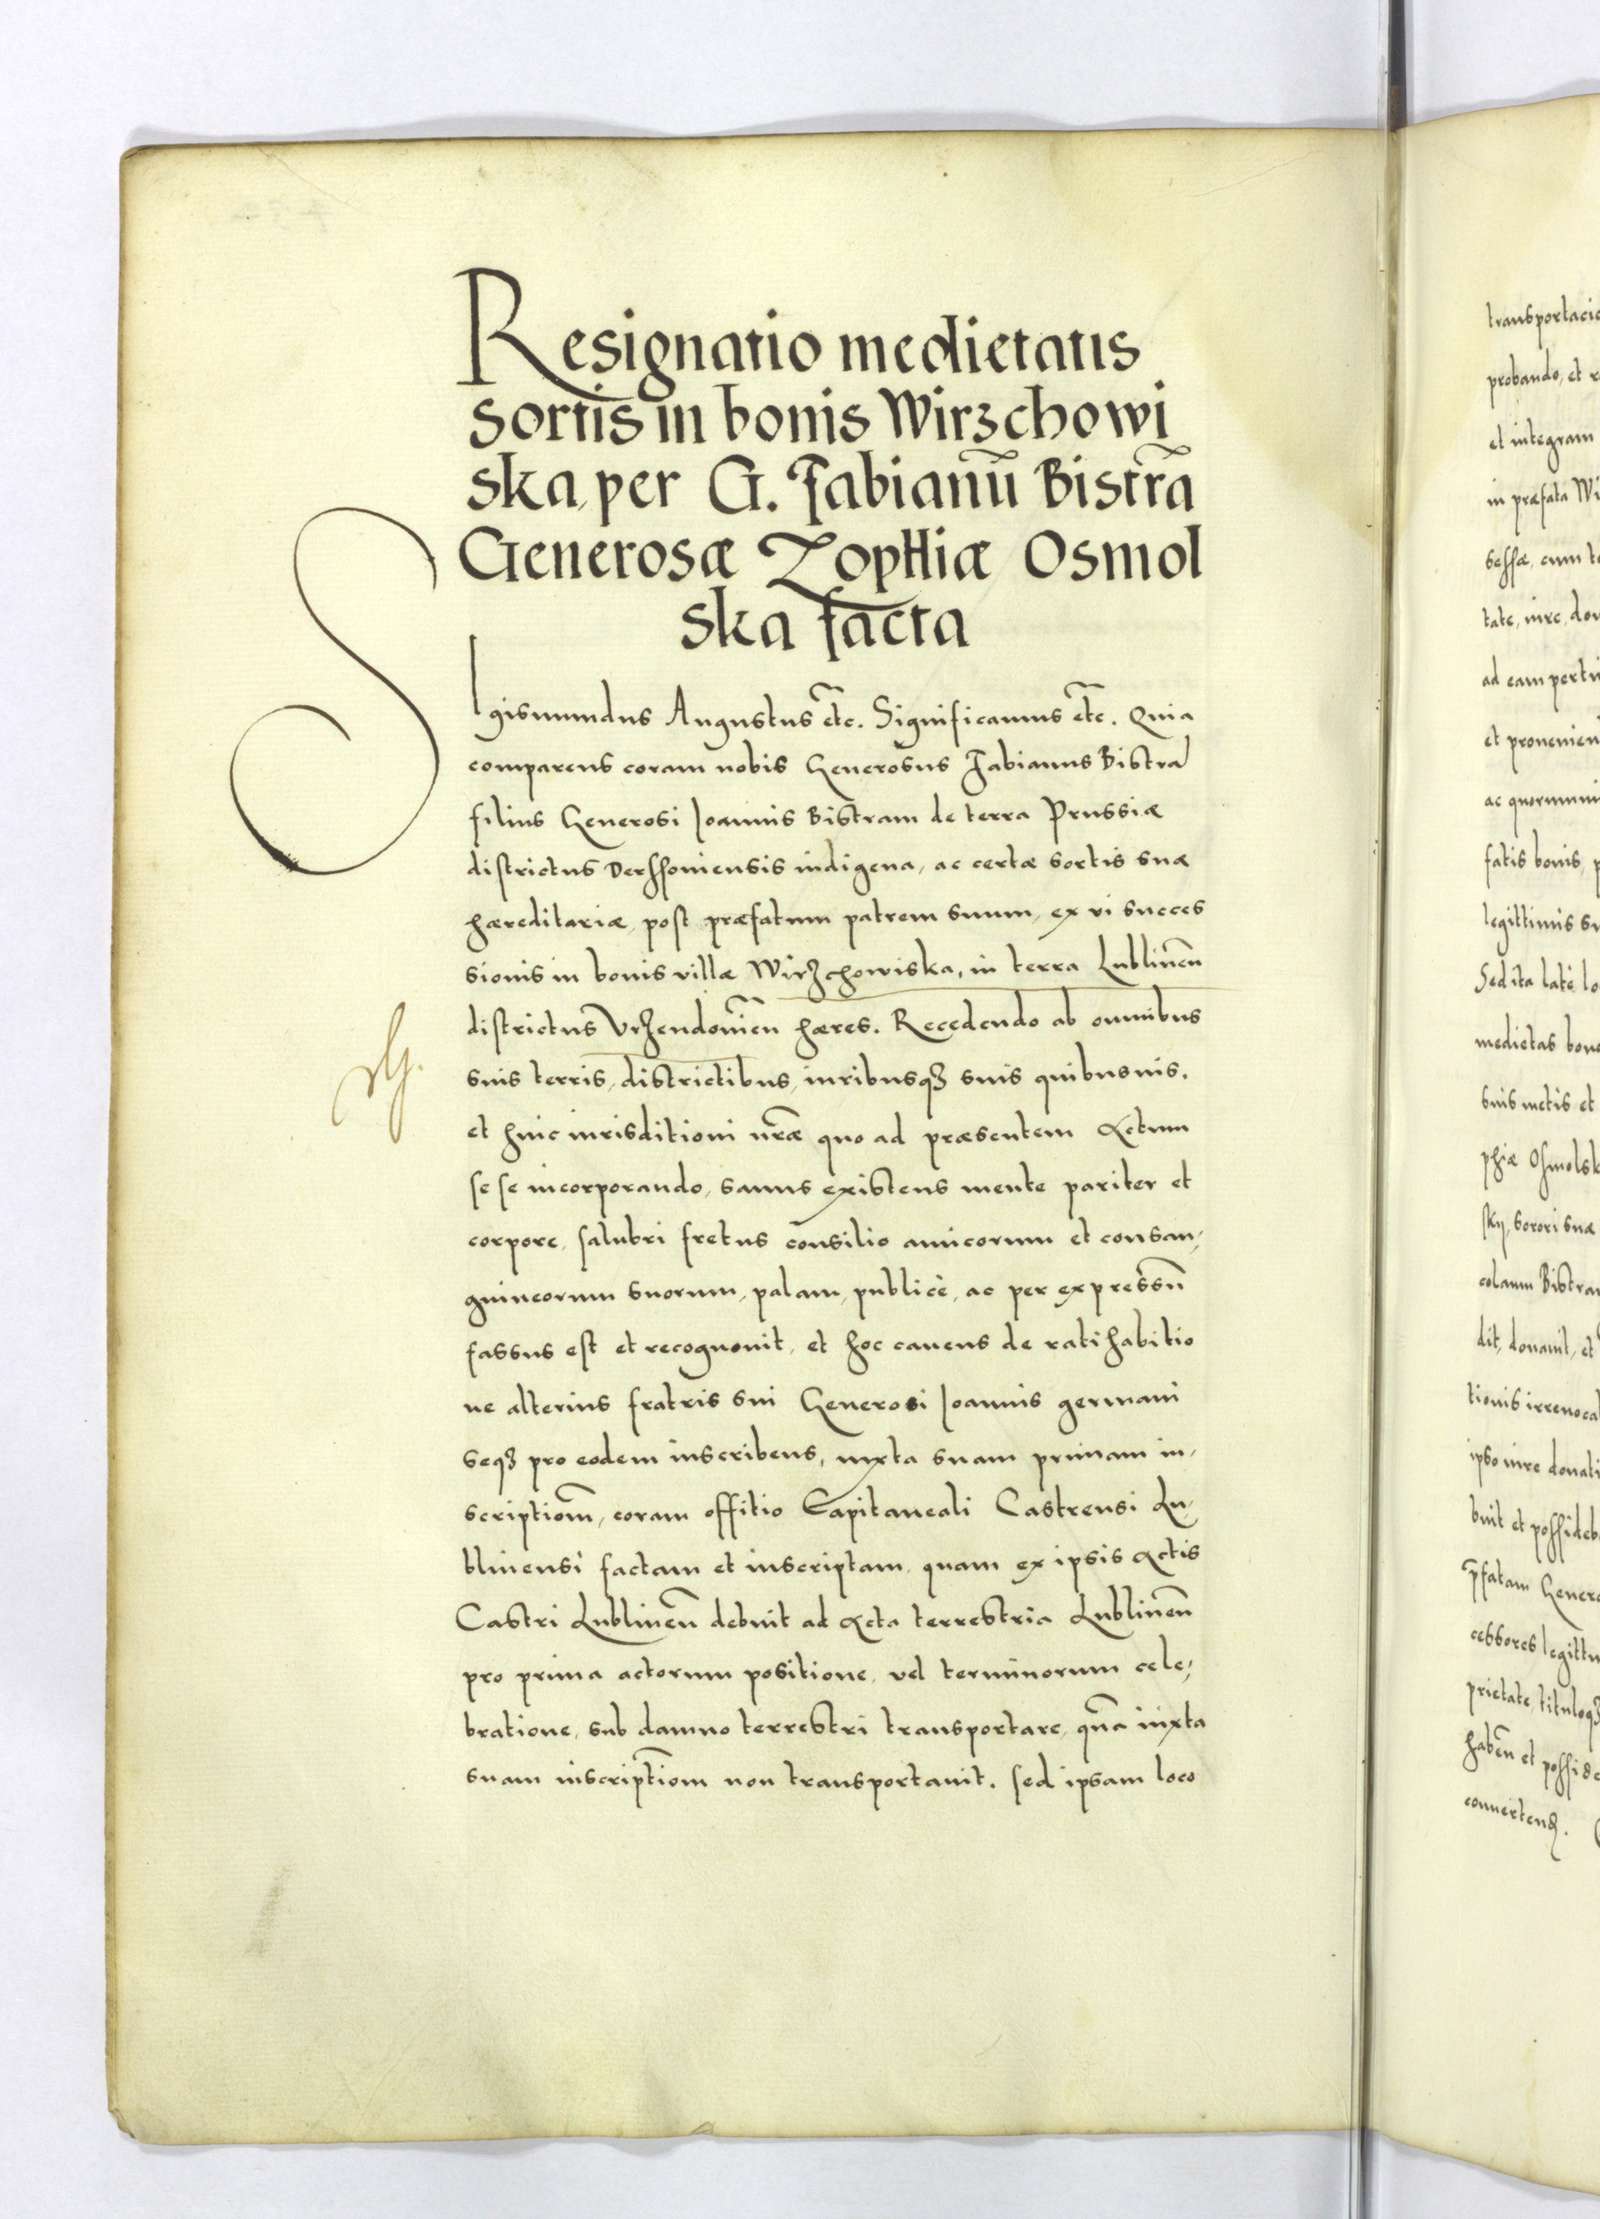 Resignatio medietatis
sortis in bonis Wirzchowi
ska, per G. Fabianū Bistrã
Generosæ Zophiæ Osmol
ska facta
Sigismundus Augustus etc̃. Significamus etc̃. Quia
comparens coram nobis Generosus Fabianus Bistram
filius Generosi Joannis Bistram de terra Prussiæ
districtus Derssoviensis indigena, ac certæ sortis suæ
hæreditariæ, post præfatum patrem suum, ex vi succes
sionis in bonis villæ Wirzchowiska, in terra Lublineñ
districtus Vrzendovieñ hæres. Recedendo ab omnibus
suis terris, districtibus, iuribusqꝫ suis quibusuis.
et huic iurisditioni nr̃æ quo ad præsentem Actum
se se incorporando, sanus existens mente pariter et
corpore, salubri fretus consilio amicorum et consan,
guineorum suorum, palam, publicè, ac per expressū
fassus est et recognouit, et hoc cauens de ratihabitio
ne alterius fratris sui Generosi Joannis germani
seqꝫ pro eodem inscribens, iuxta suam primam in,
scriptiom̃, coram offitio Capitaneali Castrensi Lu,
blinensi factam et inscriptam, quam ex ipsis Actis
Castri Lublineñ debuit ad Acta terrestria Lublineñ
pro prima actorum positione, vel terminorum cele,
bratione, sub damno terrestri transportare, quā iuxta
suam inscriptiom̃ non transportauit. sed ipsam loco
transportacio
probando, et r
et integram
in præfata Wi
sessæ, cum to
tate, iure, dom
ad eam perti
et prouenien
ac quorumui
fatis bonis, p
legittimis su
Sed ita latè, lo
medietas bono
suis metis et
phiæ Osmolsk
skij, sorori suæ
colaum Bistram
dit, donauit, et
tionis irreuocab
ipso iure donati
buit et possideb
p̃fatam Genero
cessores legittim
prietate, tituloqꝫ
habeñ et posside
conuerteñ.